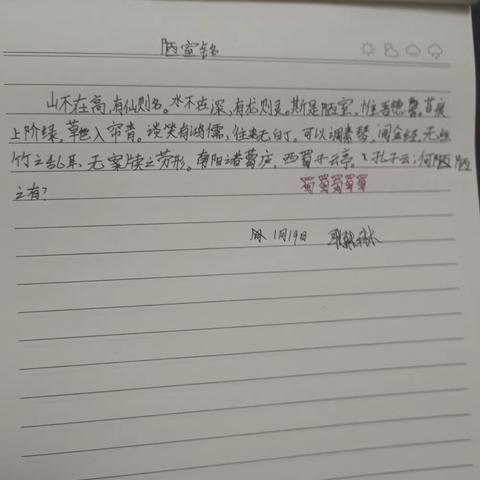 陋室铭
山不在高,有仙则名。水不在深,有龙则灵。斯是陋室,惟吾德馨。苔痕
上阶绿,草色入帘青。谈笑有鸿儒,往来无白丁。可以调素琴,阅金经。无丝
竹之乱耳,无案牍之劳形。南阳诸葛庐,西蜀子云亭。孔子云:何陋
之有?
蜀蜀蜀蜀
1月19日